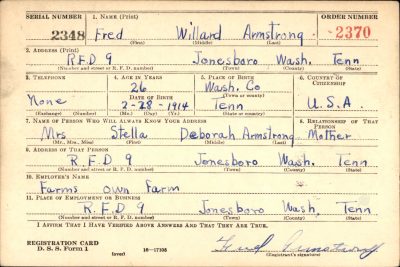 SERIAL NUMBER 1. NAME (Print) ORDER NUMBER
2348 Fred Willard Armstrong 2370
(First) (Middle) (Last)
2. ADDRESS (Print)
R.F.D 9 Jonesboro Wash. Tenn
(Number and street or R. F. D. number) (Town) (County) (State)
3. TELEPHONE 4. AGE IN YEARS 5. PLACE OF BIRTH 6. COUNTRY OF CITIZENSHIP
26 Wash. Co
DATE OF BIRTH (Town or county)
None 2-28-1914 Tenn U.S.A.
(Exchange) (Number) (Mo.) (Day) (Yr.) (State or country)
7. NAME OF PERSON WHO WILL ALWAYS KNOW YOUR ADDRESS 8. RELATIONSHIP OF THAT PERSON
Mrs Stella Deborah Armstrong Mother
(Mr., Mrs., Miss) (First) (Middle) (Last)
9. ADDRESS OF THAT PERSON
R.F.D 9 Jonesboro Wash. Tenn
(Number and street or R. F. D. number) (Town) (County) (State)
10. EMPLOYER'S NAME
Farms own Farm
11. PLACE OF EMPLOYMENT OR BUSINESS
R.F.D 9 Jonesboro Wash. Tenn
(Number and street or R. F. D. number) (Town) (County) (State)
I AFFIRM THAT I HAVE VERIFIED ABOVE ANSWERS AND THAT THEY ARE TRUE.
REGISTRATION CARD
D. S. S. Form 1 16-17105 Fred Armstrong
(over) (Registrant's signature)